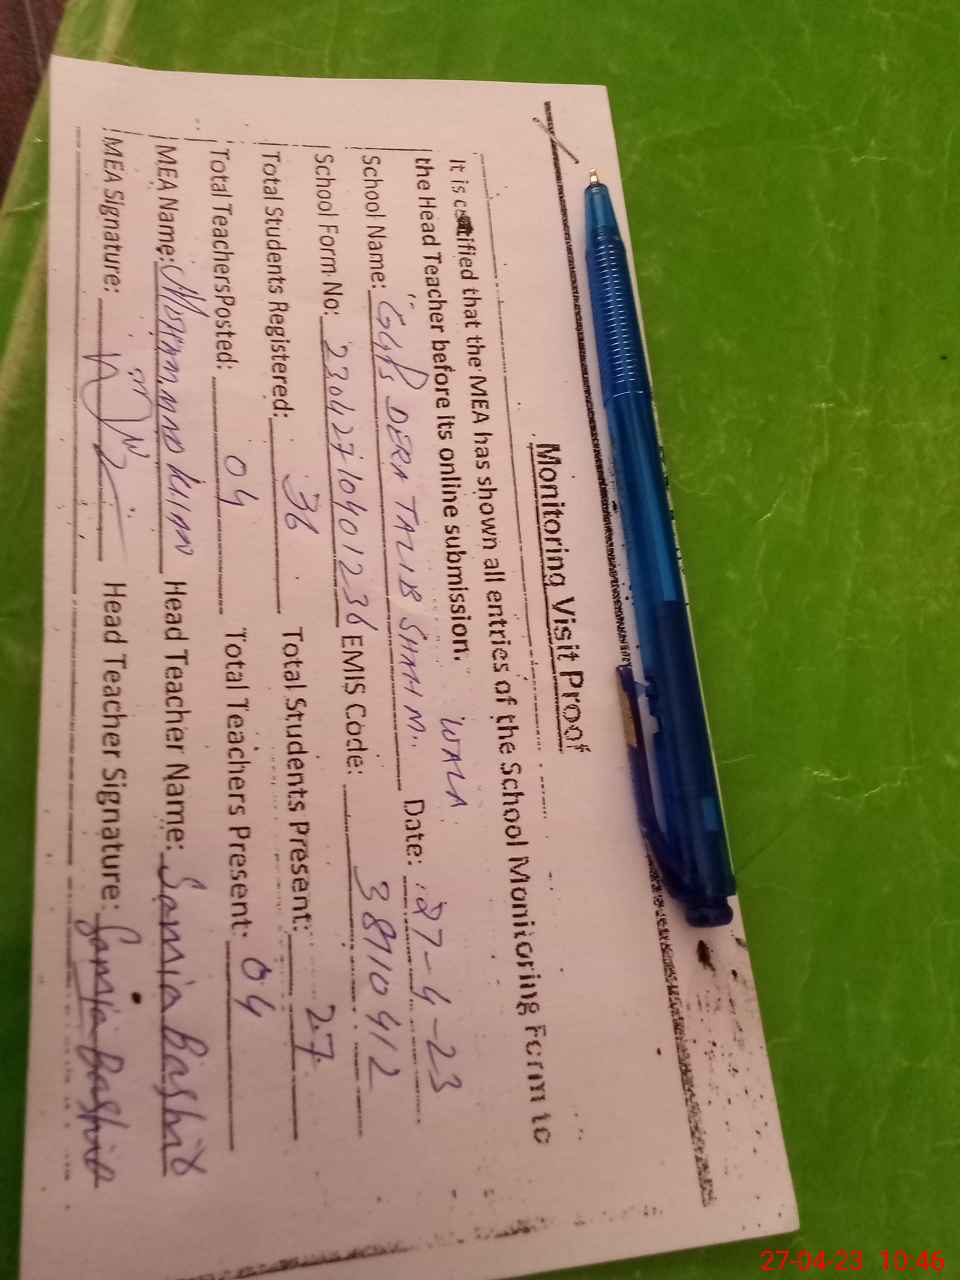 Monitoring Visit Proof
It is certified that the MEA has shown all entries of the School Monitoring Form to
the Head Teacher before its online submission.
School Name: GGPS DERA TALIB SHAH M. WALA Date: 27-4-23
School Form No: 23042710401236 EMIS Code: 38910412
Total Students Registered: 36 Total Students Present: 27
Total TeachersPosted: 04 Total Teachers Present: 04
MEA Name: Mohammad Khan Head Teacher Name: Samia Bashir
MEA Signature: Head Teacher Signature: Samia Bashir
27-04-23 10:46